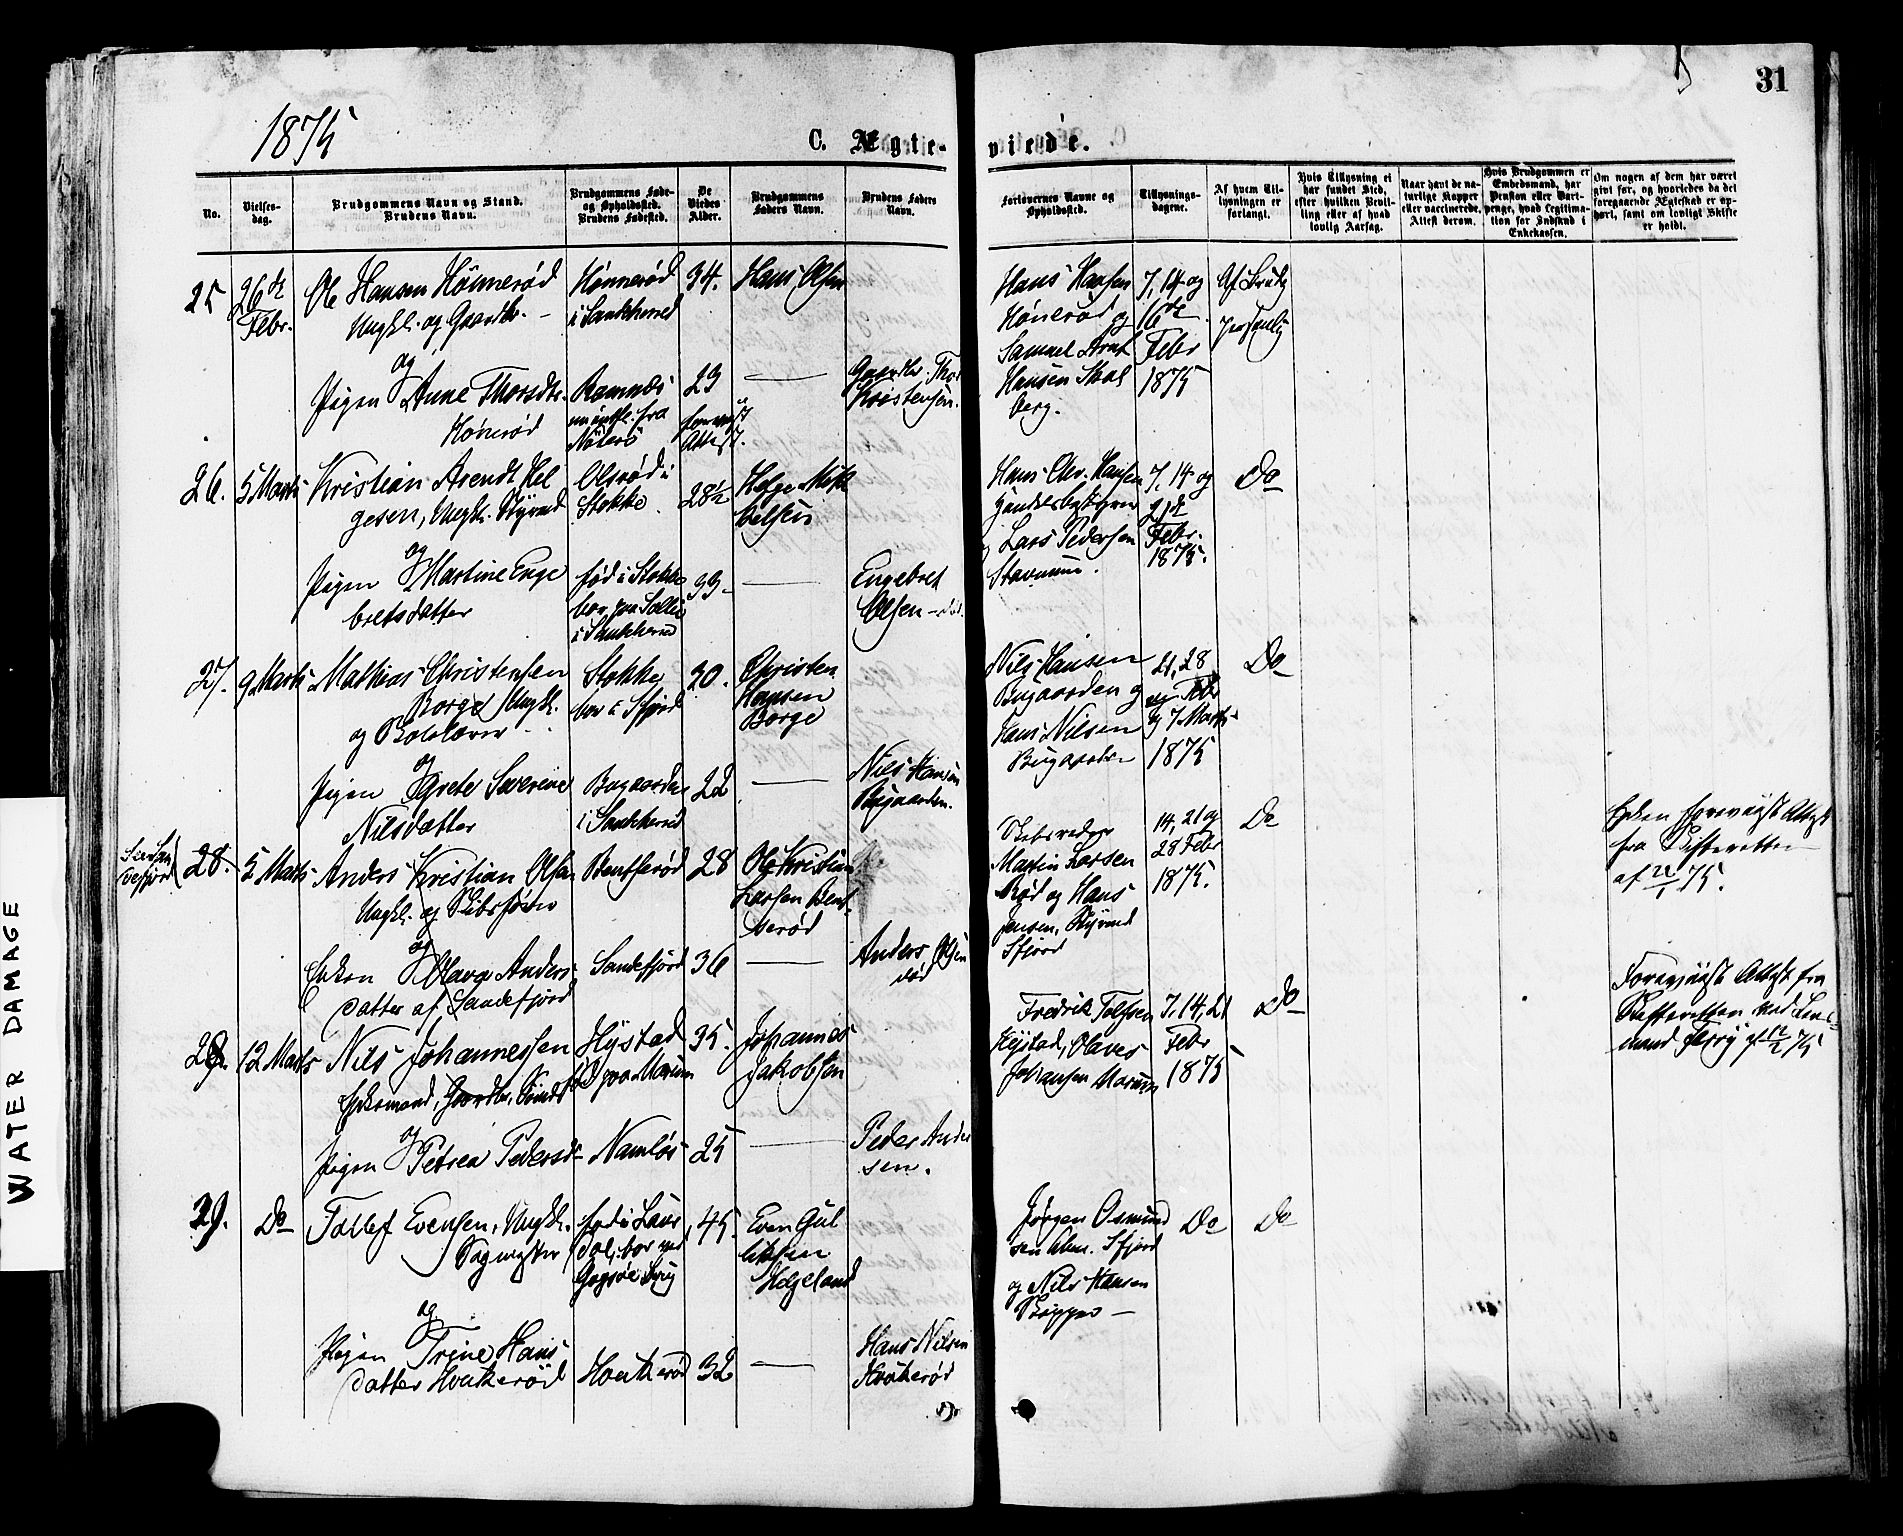 31
1875
C. Ægte-
viede.
No.
Vielses-
dag.
Brudgommens Navn og Stand.
Brudens Navn.
Brudgommens Føde-
og Opholdssted.
Brudens Fødested.
De
Viedes
Alder.
Brudgommens
Faders Navn.
Brudens Faders
Navn.
Forlovernes Navne og
Opholdssted.
Tillysnings-
dagene.
Af hvem Til-
lysningen er
forlangt.
Hvis Tillysning ei
har fundet Sted,
efter hvilken Bevil-
ling eller af hvad
lovlig Aarsag.
Naar havt de na-
turlige Kopper
eller vaccinerede,
Attest derom.
Hvis Brudgommen er
Embedsmand, har
Pension eller Vart-
penge, hvad Legitima-
tion for Indskud i
Enkekassen.
Om nogen af dem har været
gift før, og hvorledes da det
foregaaende Ægteskab er op-
hørt, samt om lovligt Skifte
er holdt.
25
26de
Febr.
Ole Hansen Hønnerød
Ungkl. og Gaardbr.
og
Pigen Anne Thorsdtr.
Hønerød
Hønnerød
i Sandeherred
Ramnæs
fra
Nøterø
34.
23
Attest.
Hans Olsen
Gaardbr. Thor
Kristensen.
Hans Hansen
Hønerød og
Samuel
Hansen
berg.
7, 14 og
16de
Febr
1875
Af Brudg
personlig
26.
5 Marts
Kristian Arendt Hel
gesen, Ungkl. Styrmd
og
Pigen Martine Enge
bretsdatter
Olsrød i
Stokke
fød i Stokke
bor paa
i Sandeherred
28½
33
Helge Mik
kelsen
Engebret
Olsen – død.
Hans Chr. Hansen
og Lars Pedersen
Stavnum.
7, 14 og
21de
Febr.
1875.
Do
27.
9 Marts
Mathias Christensen
Borge Ungkl.
og
og
Pigen Grete Severine
Nilsdatter
Stokke
bor i Sfjord
Bugaarden
i Sandeherred
30.
22
Christen
Hansen
Borge
Nils Hansen
Bugaarden.
Nils Hansen
Bugaarden og
Hans Nilsen
Bugaarden
21, 28
Febr
og 7 Marts
1875
Do
Se San
defjord
28.
5 Marts
Anders Kristian Olsen
Ungkl. og Skibsfører
og
Enken Maren Anders-
datter af Sandefjord
Bentserød
Sandefjord
28
36
Ole Kristian
Larsen Bent-
serød
Anders Olsen
død
Skibsreder
Martin Larsen
Rød og Hans
Jensen, Styrmd
Sfjord
14, 21 og
28 Febr
1875.
Do
Enken forevist Attest
fra Skifteretten
af 22/1 75.
29.
12 Marts
Nils Johannessen
Enkemand, Gaardbr.
og
Pigen Petrea Pedersdt
Hystad
paa Marum
Namløs
35.
25
Johannes
Jakobsen
Peder Ander
sen.
Fredrik Tolfsen
Hystad, Olaves
Johansen Marum
7, 14, 21
Febr
1875
Do
Forevist Attest fra
Skifteretten ved Lens-
mand af 12/2 75
29.
Do
Tollef Evensen, Ungkl.
Sagmester
og
Pigen Trine Hans
datter Hvitkerød
fød i Laur
dal, bor ved
Gogsøe Brug
Hvitkerød
45.
32
Even Gul
liksen
Helgeland
Hans Nilsen
Hvitkerød
Jørgen Osmund
sen Sfjord
og Nils Hansen
Do
Do
WATER DAMAGE